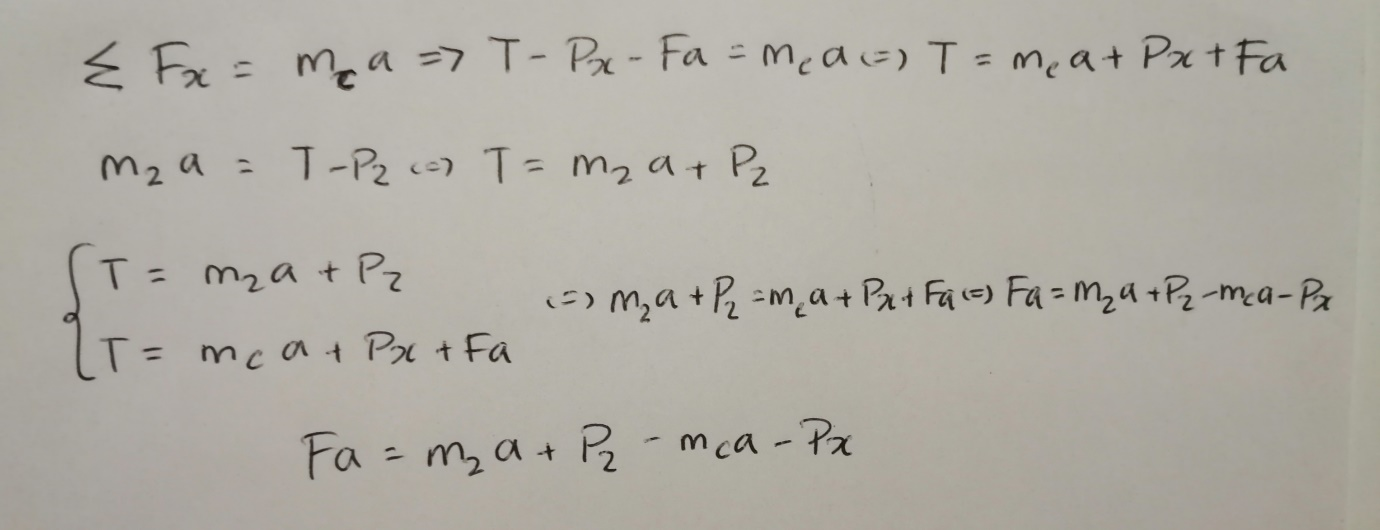 Σ Fx = mc a => T - Px - Fa = mc a (=) T = mc a + Px + Fa
m2 a = T - P2 (=) T = m2 a + P2
T = m2 a + P2
T = mc a + Px + Fa
(=) m2 a + P2 = mc a + Px + Fa (=) Fa = m2 a + P2 - mc a - Px
Fa = m2 a + P2 - mc a - Px